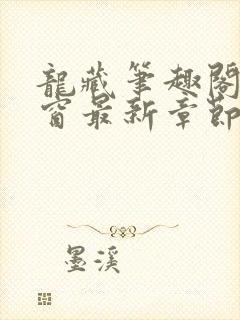 龍藏筆趣閣
窗最新章節
墨溪